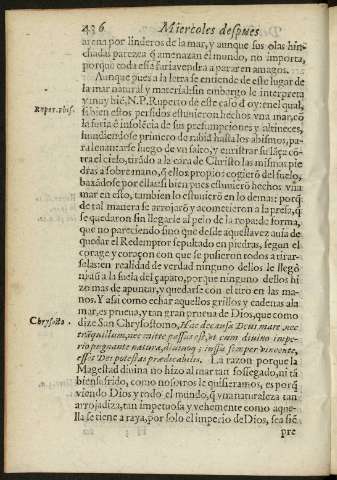 436 Miercoles despues
arena por linderos de la mar, y aunque sus olas hin-
chadas parezca q̃ amenazan el mundo, no importa,
porquẽ toda essa furia vendra a parar en amagos.
Aunque pues a la letra se entiende de este lugar de
la mar natural y material: sin embargo le interpreta
y muy biẽ, N. P. Ruperto de este caso d oy: en el qual,
Ruper. ibi.
si bien estos perfidos estuuieron hechos vna mar, cõ
la furia è insolẽcia de sus presumpciones y altineces,
hundiendose primero de rabia hasta los abismos, pa-
ra leuantarse luego de vn salto, y enristrar su lãça cõ-
tra el cielo, tirãdo a la cara de Christo las mismas pie
dras a sobre mano, q̃ ellos propios cogierõ del suelo,
baxãdose por ellas: si bien pues estuuierõ hechos vna
mar en esto, tambien lo estuuierõ en lo demas: porq̃
de tal manera se arrojarõ y acometieron a la presa, q̃
se quedaron sin llegarle al pelo de la ropa: de forma,
que no pareciendo sino que desde aquella vez auia de
quedar el Redemptor sepultado en piedras, segun el
corage y coraçon con que se pusieron todos a tirar-
selas: en realidad de verdad ninguno dellos le llegò
ni aun a la suela del çapato, porque ninguno dellos hi
zo mas de apuntar, y quedarse con el tiro en las ma-
nos. Y assi como echar aquellos grillos y cadenas a la
mar, es prueua, y tan gran prueua de Dios, que como
Chrysosto.
dize San Chrysostomo, Hac de causa Deus mare, nec
trãquillum, nec mitte passus est, vt cum diuino impe-
rio pugnante natura, diuinoq; iussu semper vincente,
essiò Dei potestas prædicabilis. La razon porque la
Magestad diuina no hizo al mar tan sossegado, ni tã
bien sufrido, como nosotros le quisieramos, es porq̃
viendo Dios y todo el mundo, q̃ vna naturaleza tan
arrojadiza, tan impetuosa y vehemente como aque-
lla se tiene a raya, por solo el imperio de Dios, sea siẽ
pre